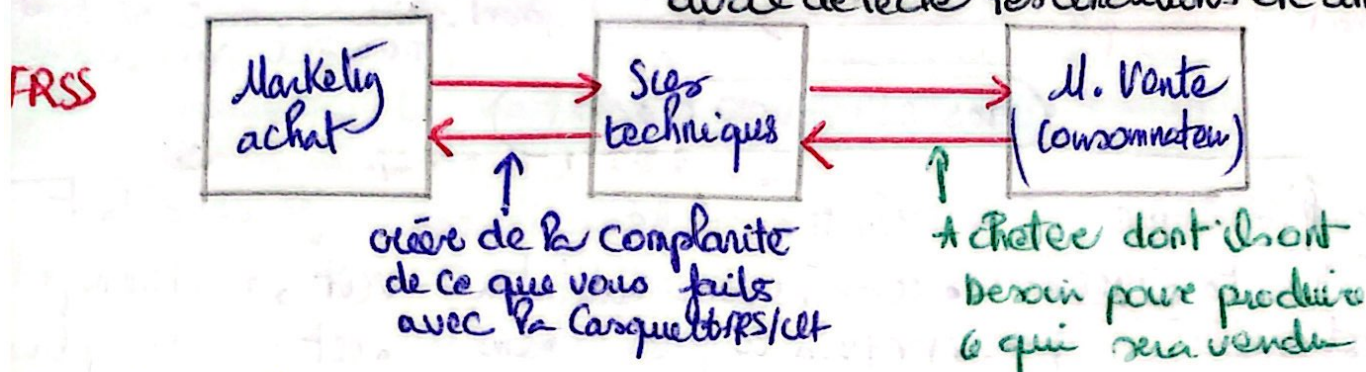 FRSS
Marketig
achat
Sces
techniques
M. Vente
(Consommateur)
créér de la complarité
de ce que vous faits
avec la Casquette FRS/clt
Achetee dont ils ont
besoin pour produire
ce qui sera vendu